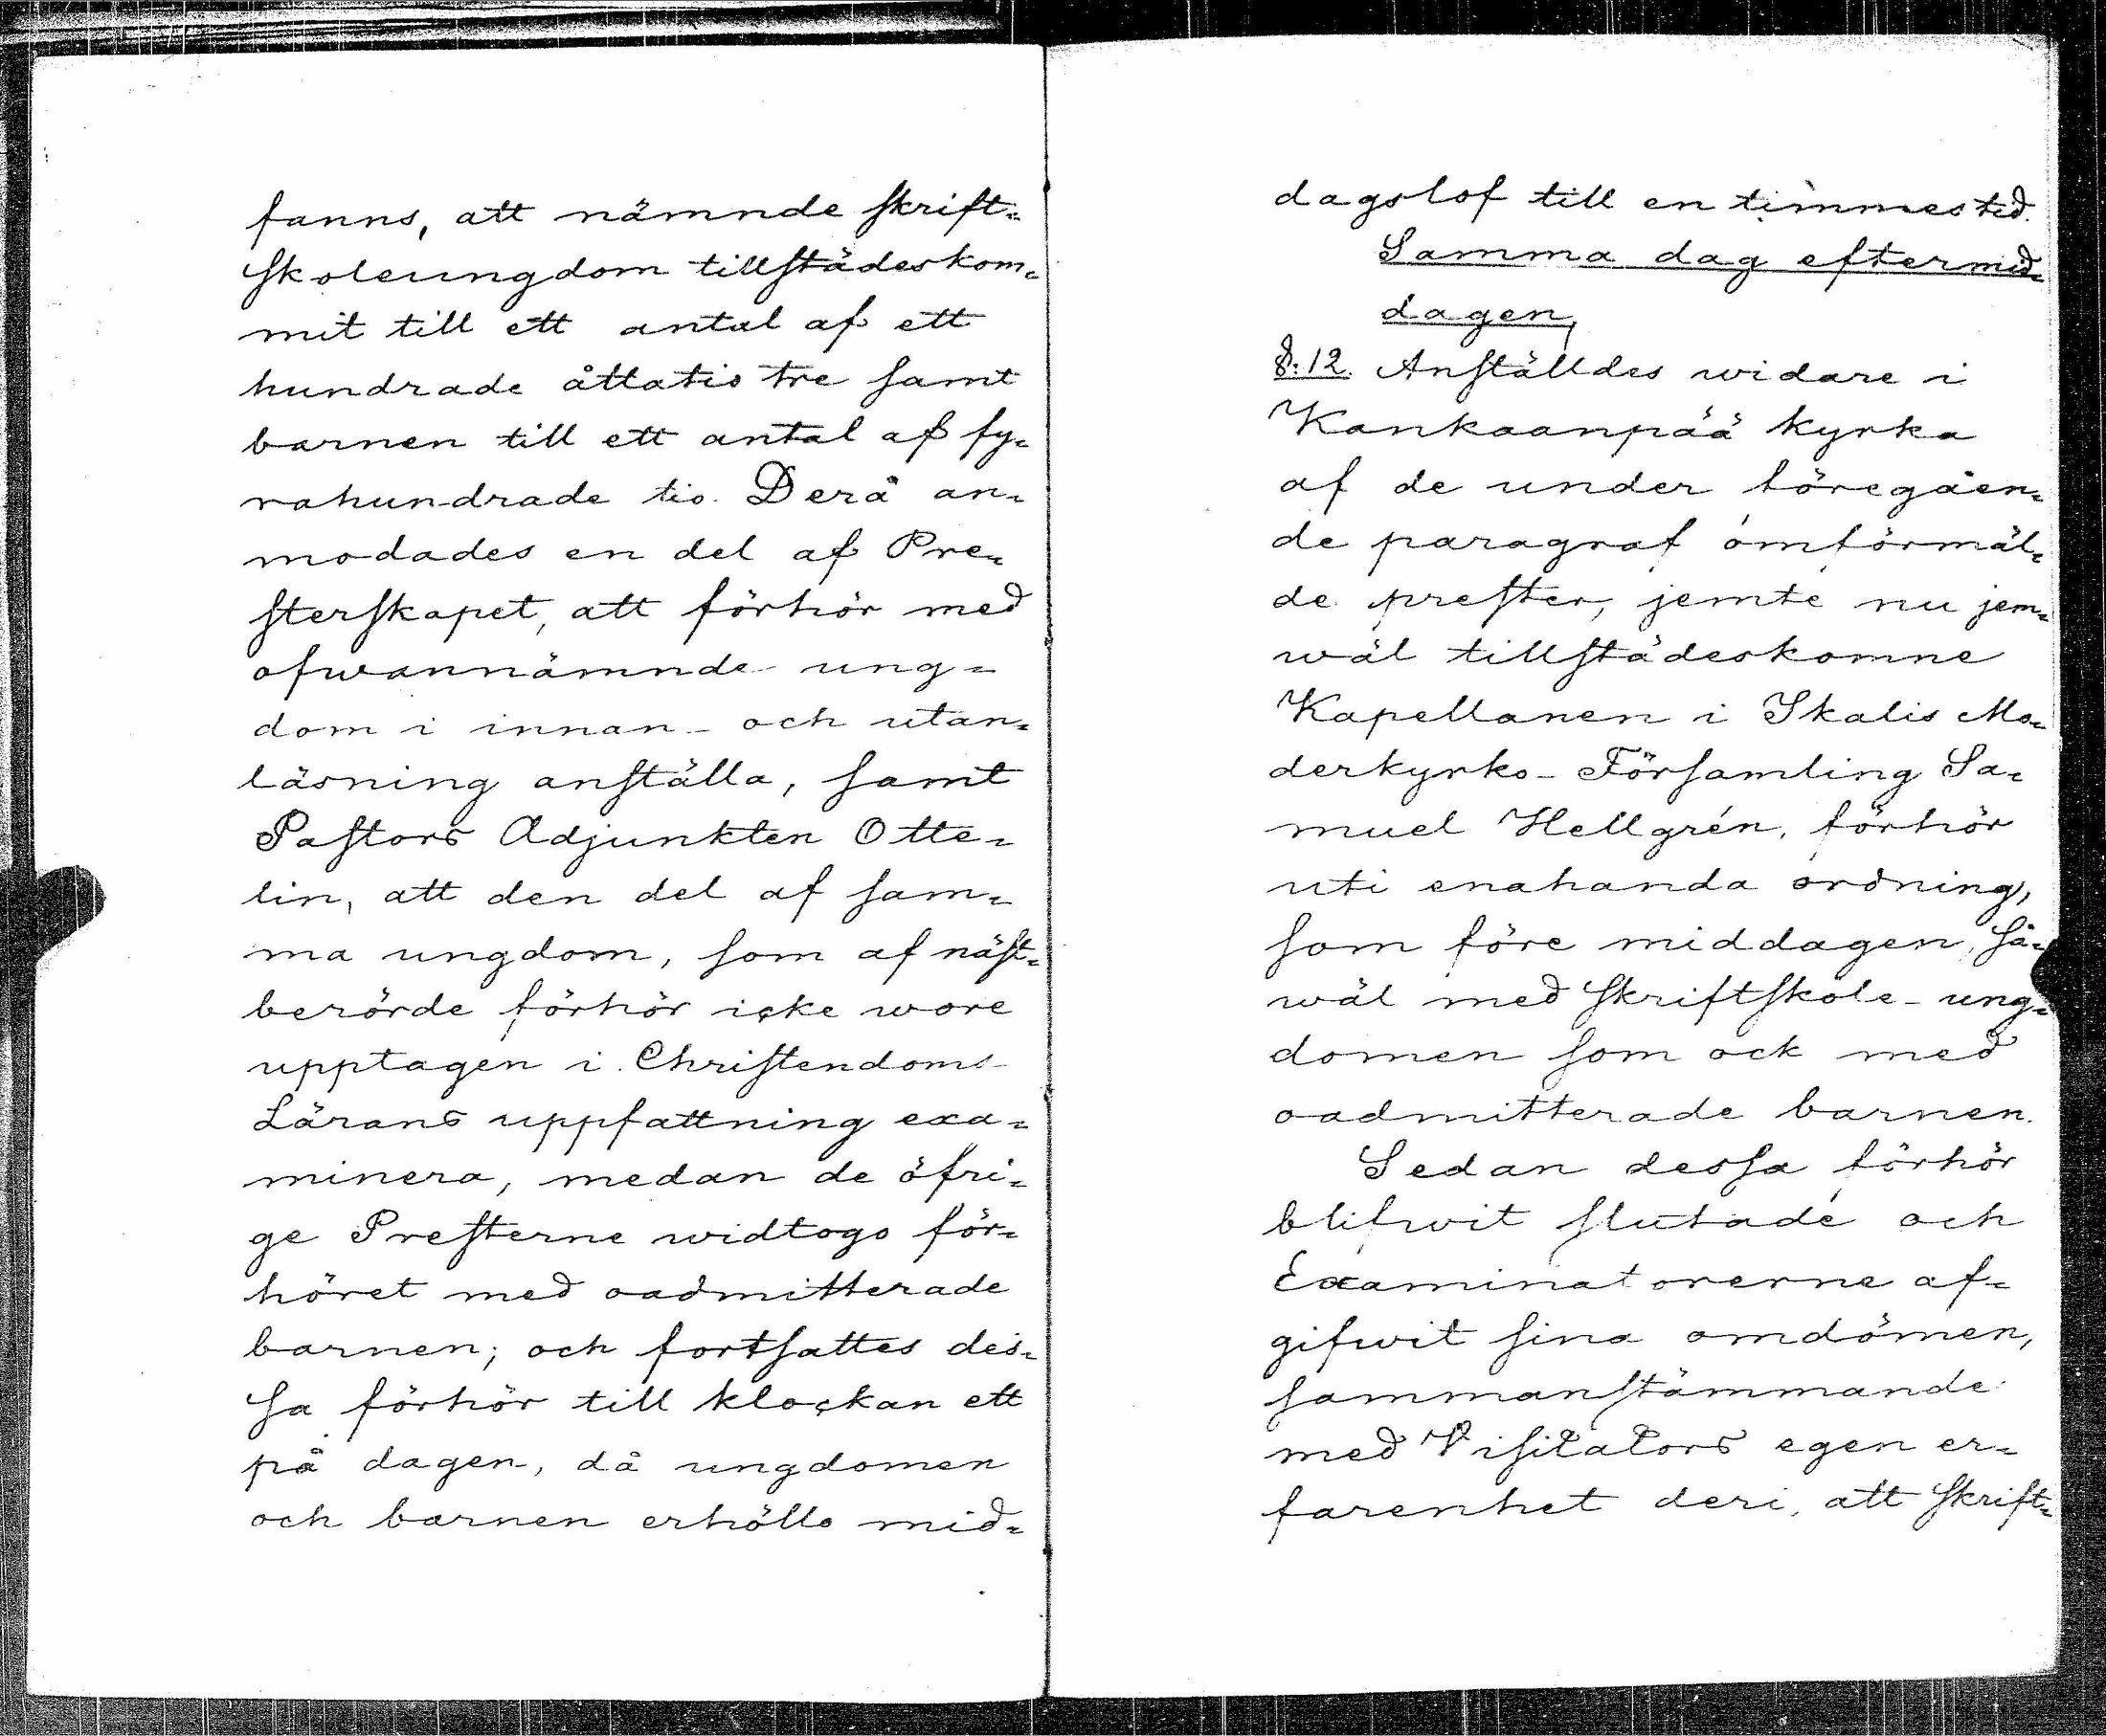 fanns, att nämnde skrift=
skoleungdom tillstädeskom=
mit till ett antal af ett
hundrade åttatio tre samt
barnen till ett antal af fy=
rahundrade tio. Derå an=
modades en del af Pre=
sterskapet, att förhör med
ofwannämnde ung=
dom i innan- och utan=
läsning anställa, samt
Pastors Adjunkten Otte=
lin, att den del af sam=
ma ungdom, som af näst=
berörde förhör icke wore
upptagen i Christendoms-
Lärans uppfattning exa=
minera, medan de öfri=
ge Presterne widtogo för=
höret med oadmitterade
barnen; och fortsattes des=
sa förhör till klockan ett
på dagen, då ungdomen
och barnen erhöllo mid=
dagslof till en timmes tid.
Samma dag eftermid=
dagen,
§: 12. Anställdes widare i
Kankaanpää kyrka
af de under föregåen=
de paragraf omförmäl=
de prester, jemte nu jem=
wäl tillstädeskomne
Kapellanen i Ikalis Mo=
derkyrko-Församling Sa=
muel Hellgrén, förhör
uti enahanda ordning,
som före middagen, så=
wäl med skriftskole-ung=
domen som ock med
oadmitterade barnen.
Sedan dessa förhör
blifwit slutade och
Examinatorerne af=
gifwit sina omdömen,
sammanstämmande
med Visitators egen er=
farenhet deri, att skrift=